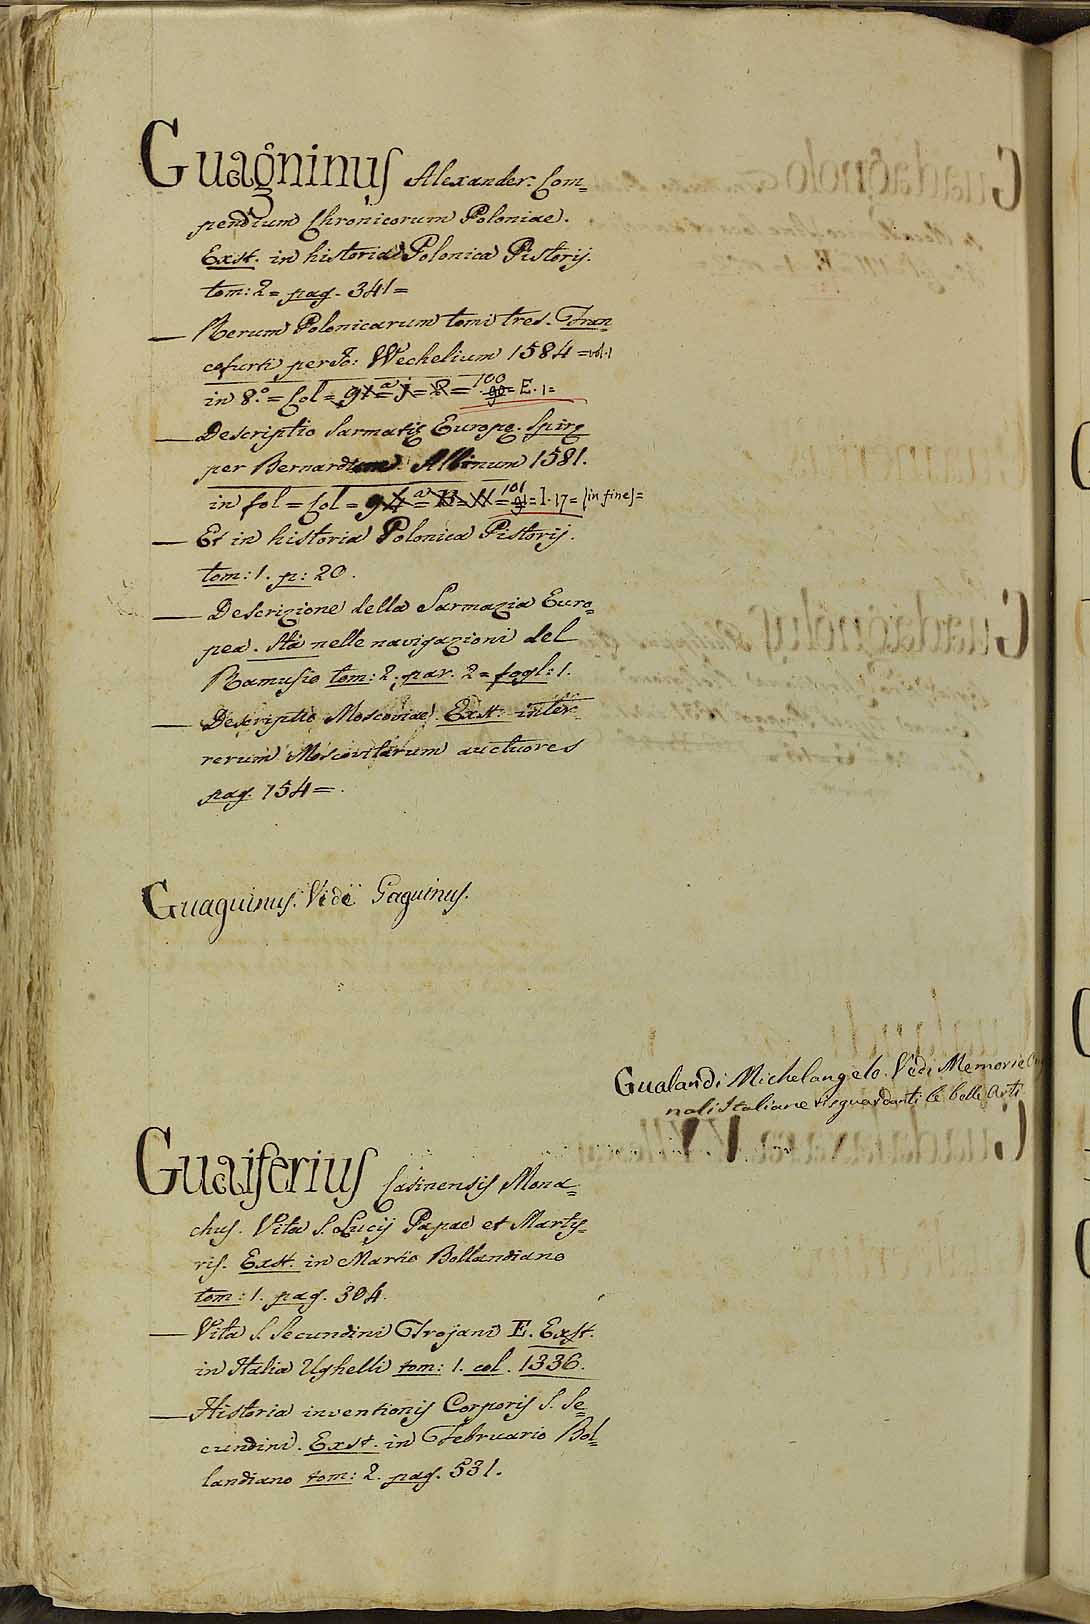 Guagninus Alexander. Com=
pendium Chronicorum Poloniae.
Exst. in historia Polonica Pistorij.
tom: 2= pag. 341=
— Rerum Polonicarum tomi tres. Fran=
cofurti per Jo: Wechelium 1584 = vol. 1
in 8.° = Col = 100 = E. 1 =
— Descriptio Sarmatię Europę. Spirę
per Bernardum Albinum 1581.
in fol = Col = 101 = I. 17 = (in fine) =
— Et in historia Polonica Pistorij.
tom: 1. p: 20.
— Descrizione della Sarmazia Euro=
pea. Stà nelle navigazioni del
Ramusio tom: 2. par. 2 = fogl: 1.
— Descriptio Moscoviae. Exst: inter
rerum Moscovitarum auctuores
pag. 154 =.
Guaguinus. Vide Gaguinus.
Gualandi Michelangelo. Vedi Memorie Ori
nali Italiane risguardanti le belle Arti
Guaiferius Casinensis Mona=
chus. Vita S. Lucij Papae et Marty=
ris. Exst. in Martio Bollandiano
tom: 1. pag. 304.
— Vita S. Secundini Trojani E. Exst.
in Italia Ughelli tom: 1. col. 1336.
— Historia inventionis Corporis S. Se=
cundini. Exst. in Februario Bol=
landiano tom: 2. pag. 531.